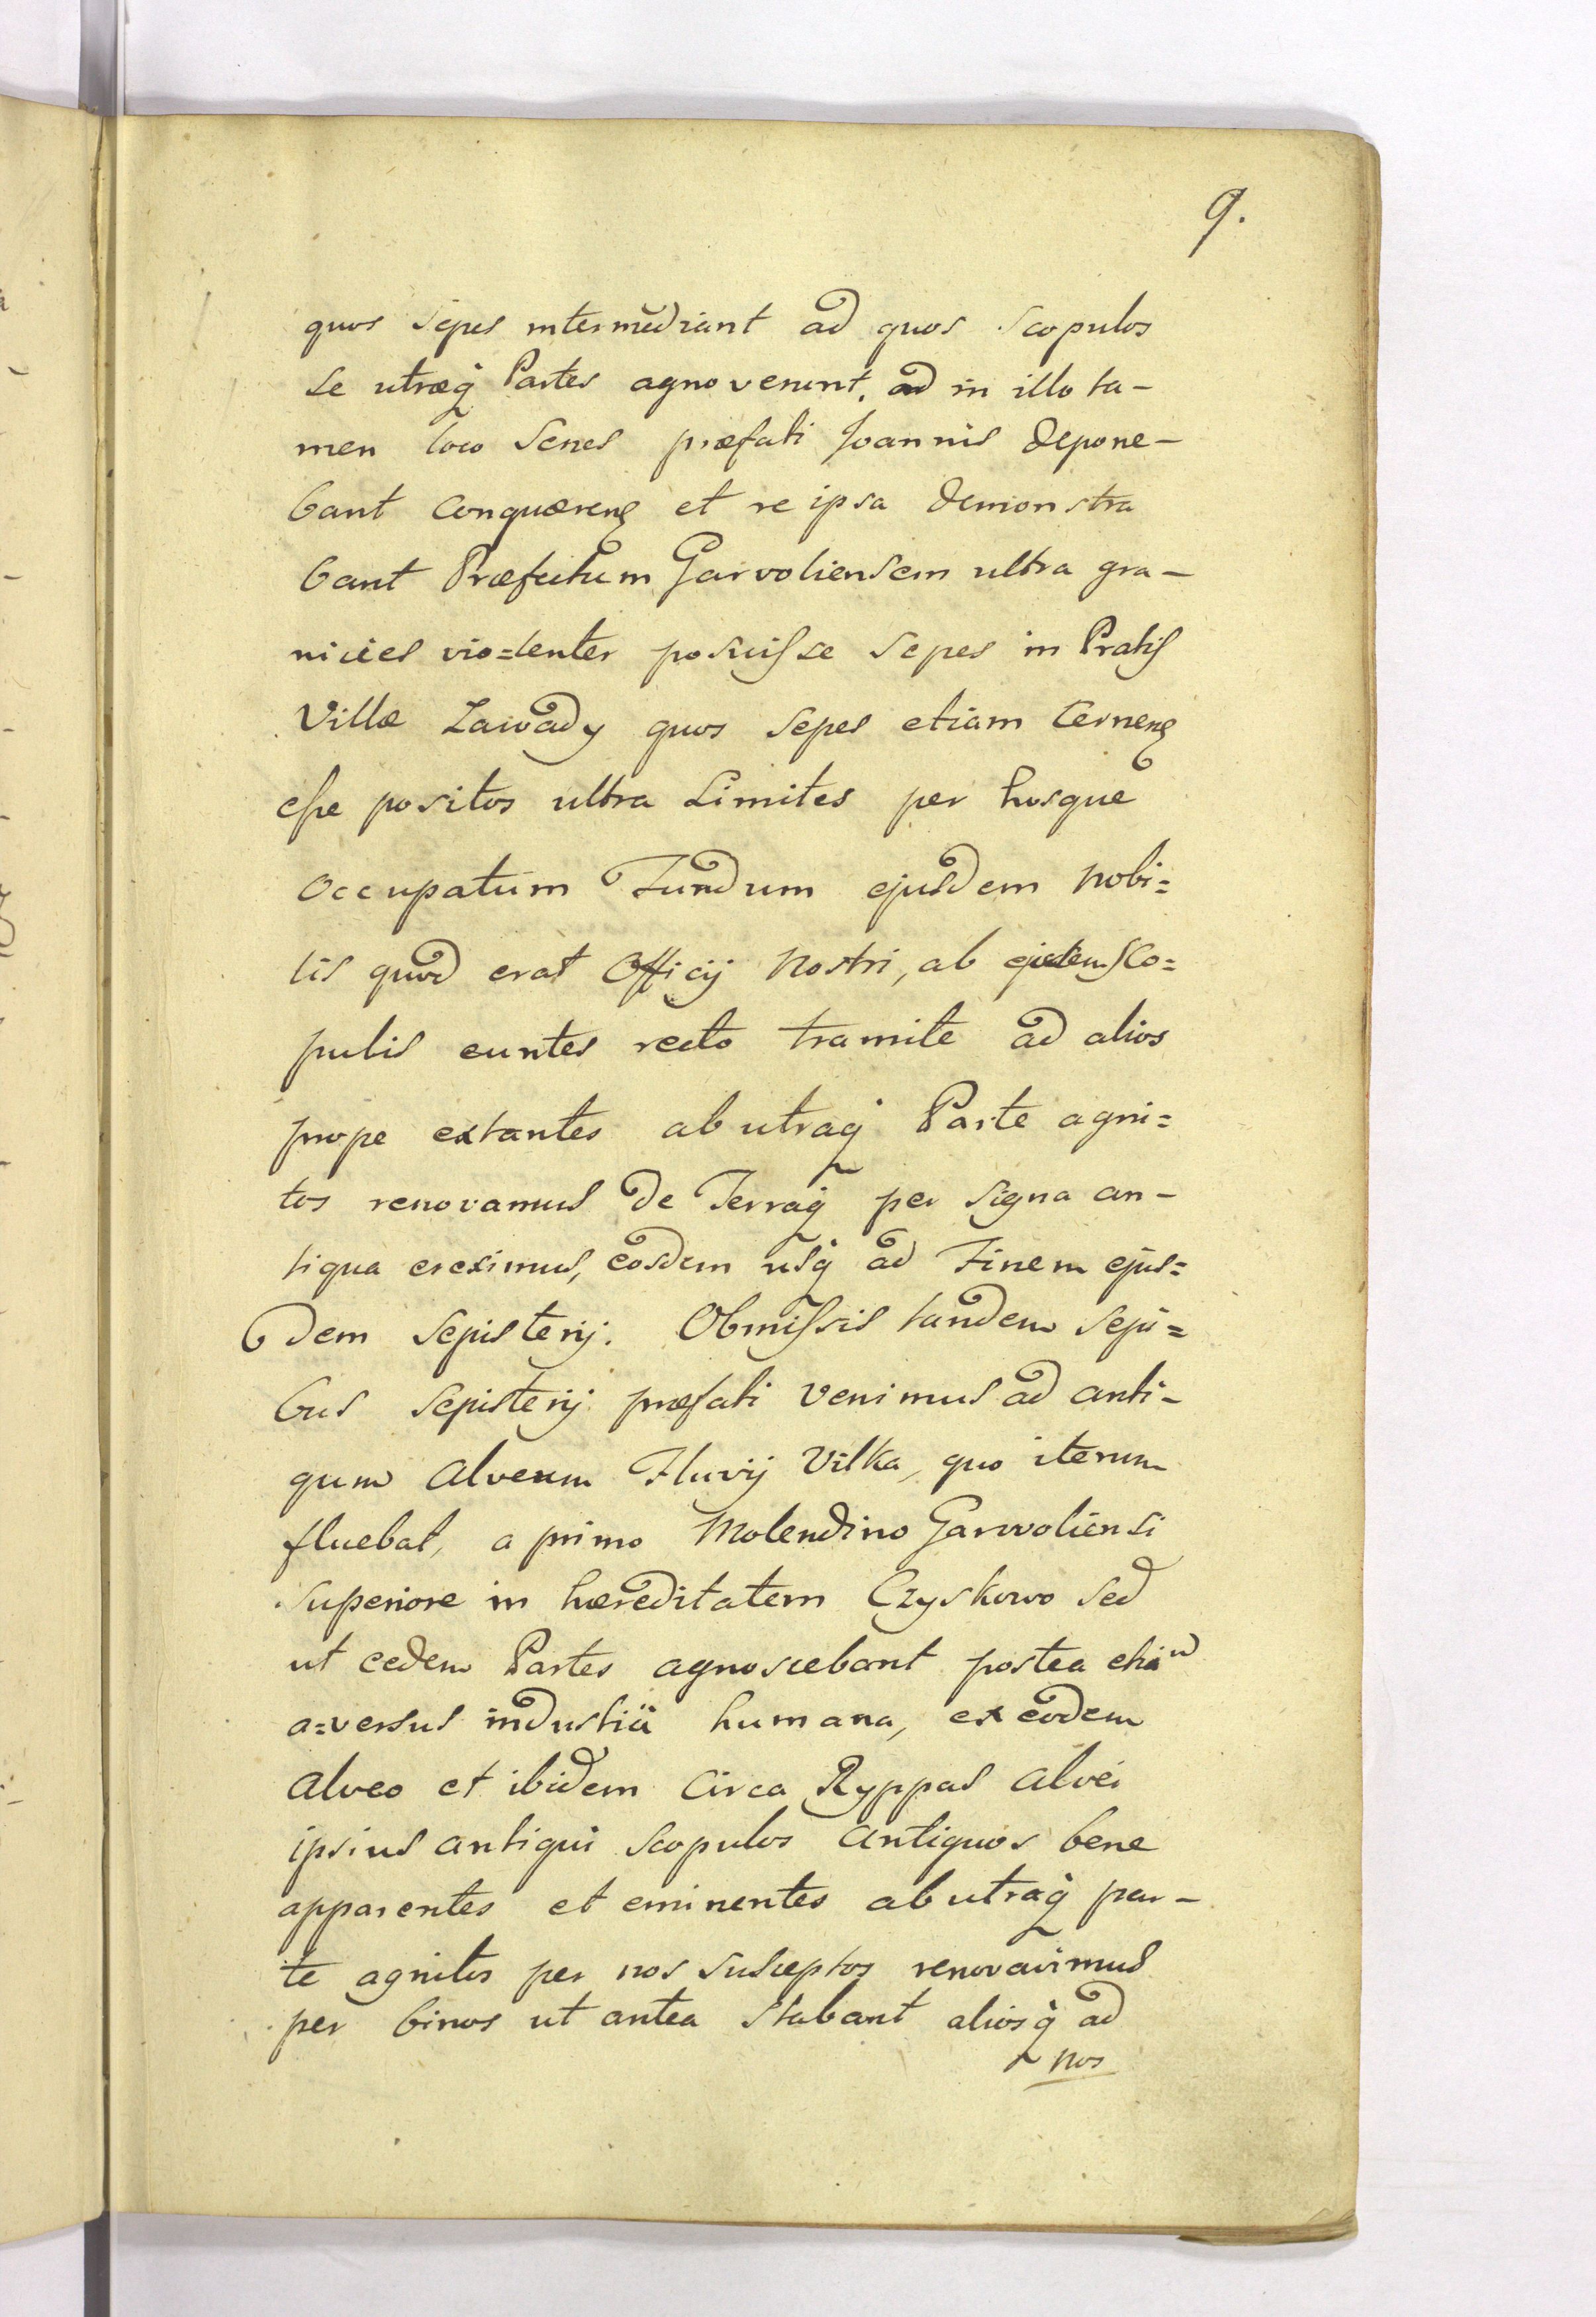 9.
quos sepes intermediant ad quos scopulos
se utræq̃ Partes agnoverunt, ad in illo ta-
men loco Senes præfati Joannis depone-
bant conquærenѕ et re ipsa demonstra
bant Præfectum Garvoliensem ultra gra-
nicies vio=lenter posuisse sepes in Pratis
Villæ Zawady quos sepes etiam Cernenѕ
esse positos ultra Limites per hosque
Occupatum Fundum ejusdem Nobi=
lis quod erat Officij Nostri, ab ejsdem Sco=
pulis euntes recto tramite ad alios
prope extantes ab utraq̃ Parte agni=
tos renovamus de Terraq̃ per signa an-
tiqua ereximus, eosdem usq̃ ad Finem ejus=
dem Sepisterij. Obmissis tandem sepi=
bus Sepisterij præfati venimus ad anti-
qum Alveum Fluvij Vilka, quo iterum
fluebat, a primo Molendino Garvoliensi
Superiore in hæreditatem Czyskowo sed
ut eedem Partes agnoscebant postea etiam
a=versus industiä humana, ex eodem
Alveo et ibidem Circa Ryppas Alvei
ipsius antiqui Scopulos antiquos bene
apparentes et eminentes ab utraq̃ par-
te agnitos per nos susceptos renovavimus
per binos ut antea stabant aliosq̃ ad
nos